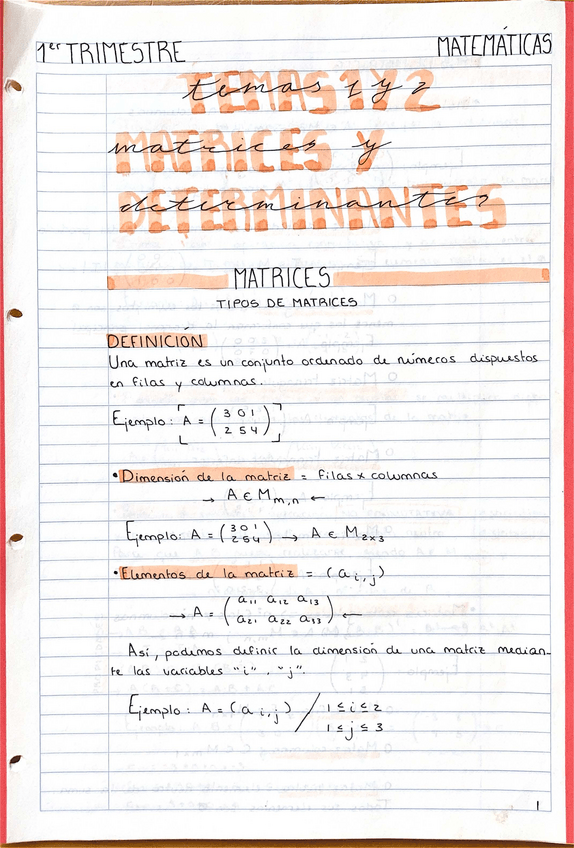 1er TRIMESTRE
MATEMÁTICAS
temas 1 y 2
TEMAS 1 Y 2
matrices y
MATRICES Y
determinantes
DETERMINANTES
MATRICES
TIPOS DE MATRICES
DEFINICIÓN
Una matriz es un conjunto ordenado de números dispuestos
en filas y columnas.
Ejemplo: A = ( 3 0 1
2 5 4 )
• Dimensión de la matriz = filas x columnas
→ A ∈ M m,n ←
Ejemplo: A = ( 3 0 1
2 5 4 ) → A ∈ M 2x3
• Elementos de la matriz = (a i,j)
→ A = ( a11 a12 a13
a21 a22 a33 ) ←
Así, podemos definir la dimensión de una matriz median-
te las variables "i", "j".
Ejemplo: A = (a i,j) / 1 ≤ i ≤ 2
1 ≤ j ≤ 3
1